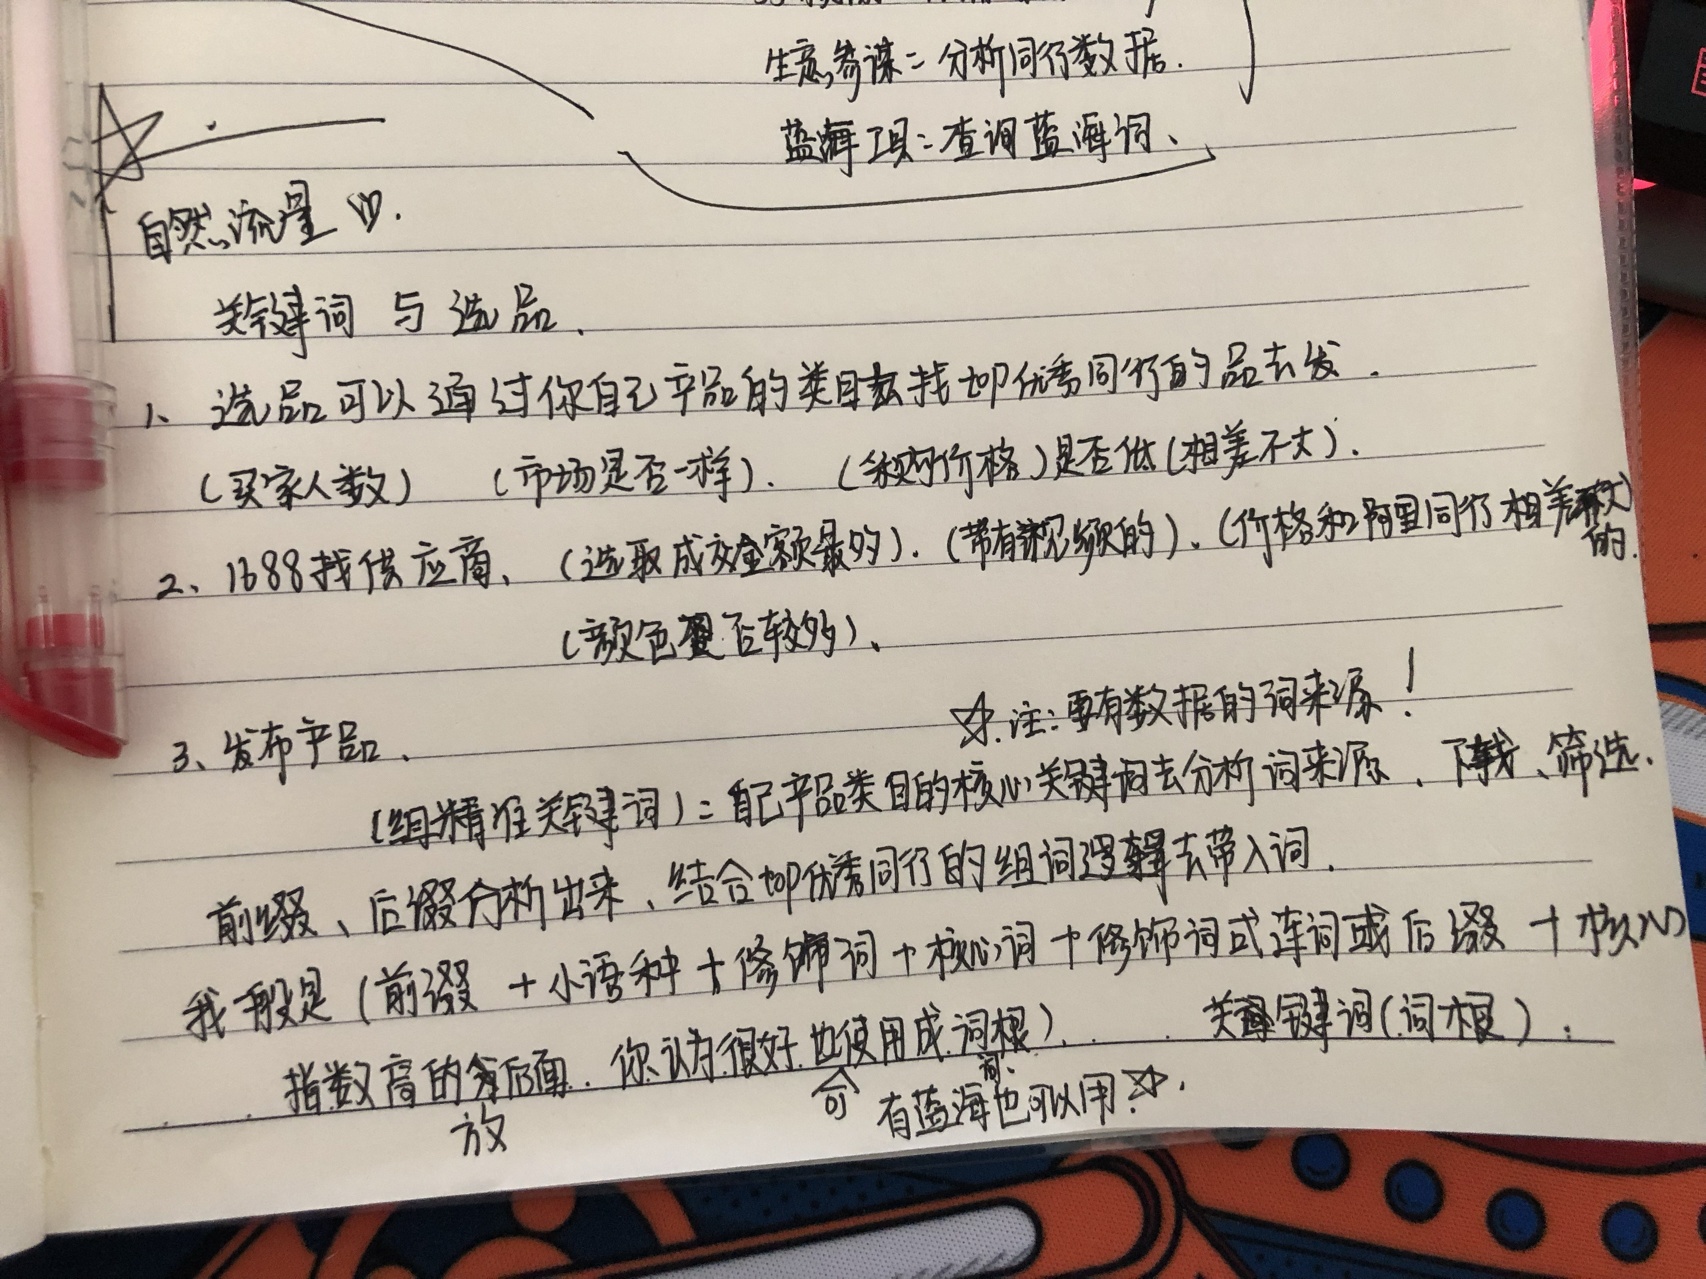 生意参谋：分析同行数据.
蓝海工具：查询蓝海词、
自然流量
关键词 与 选品.
1、选品可以通过你自己产品的类目去找top优秀同行的品去发.
(买家人数) (市场是否一样). (采购价格)是否低(相差不大).
2、1688找供应商、(选取成交金额最多的). (带有视频的)、(价格和阿里同行相差不大的).
(颜色是否较多)、
☆.注：要有数据的词来源！
3、发布产品.
(组精准关键词)：自己产品类目的核心关键词去分析词来源、下载、筛选.
前缀、后缀分析出来、结合top优秀同行的组词逻辑去带入词.
我一般是(前缀 + 小语种 + 修饰词 + 核心词 + 修饰词或连词或后缀 + 核心
关键词(词根).
指数高的放后面. 你认为很好也可使用成词根).
有蓝海词也可以用☆.